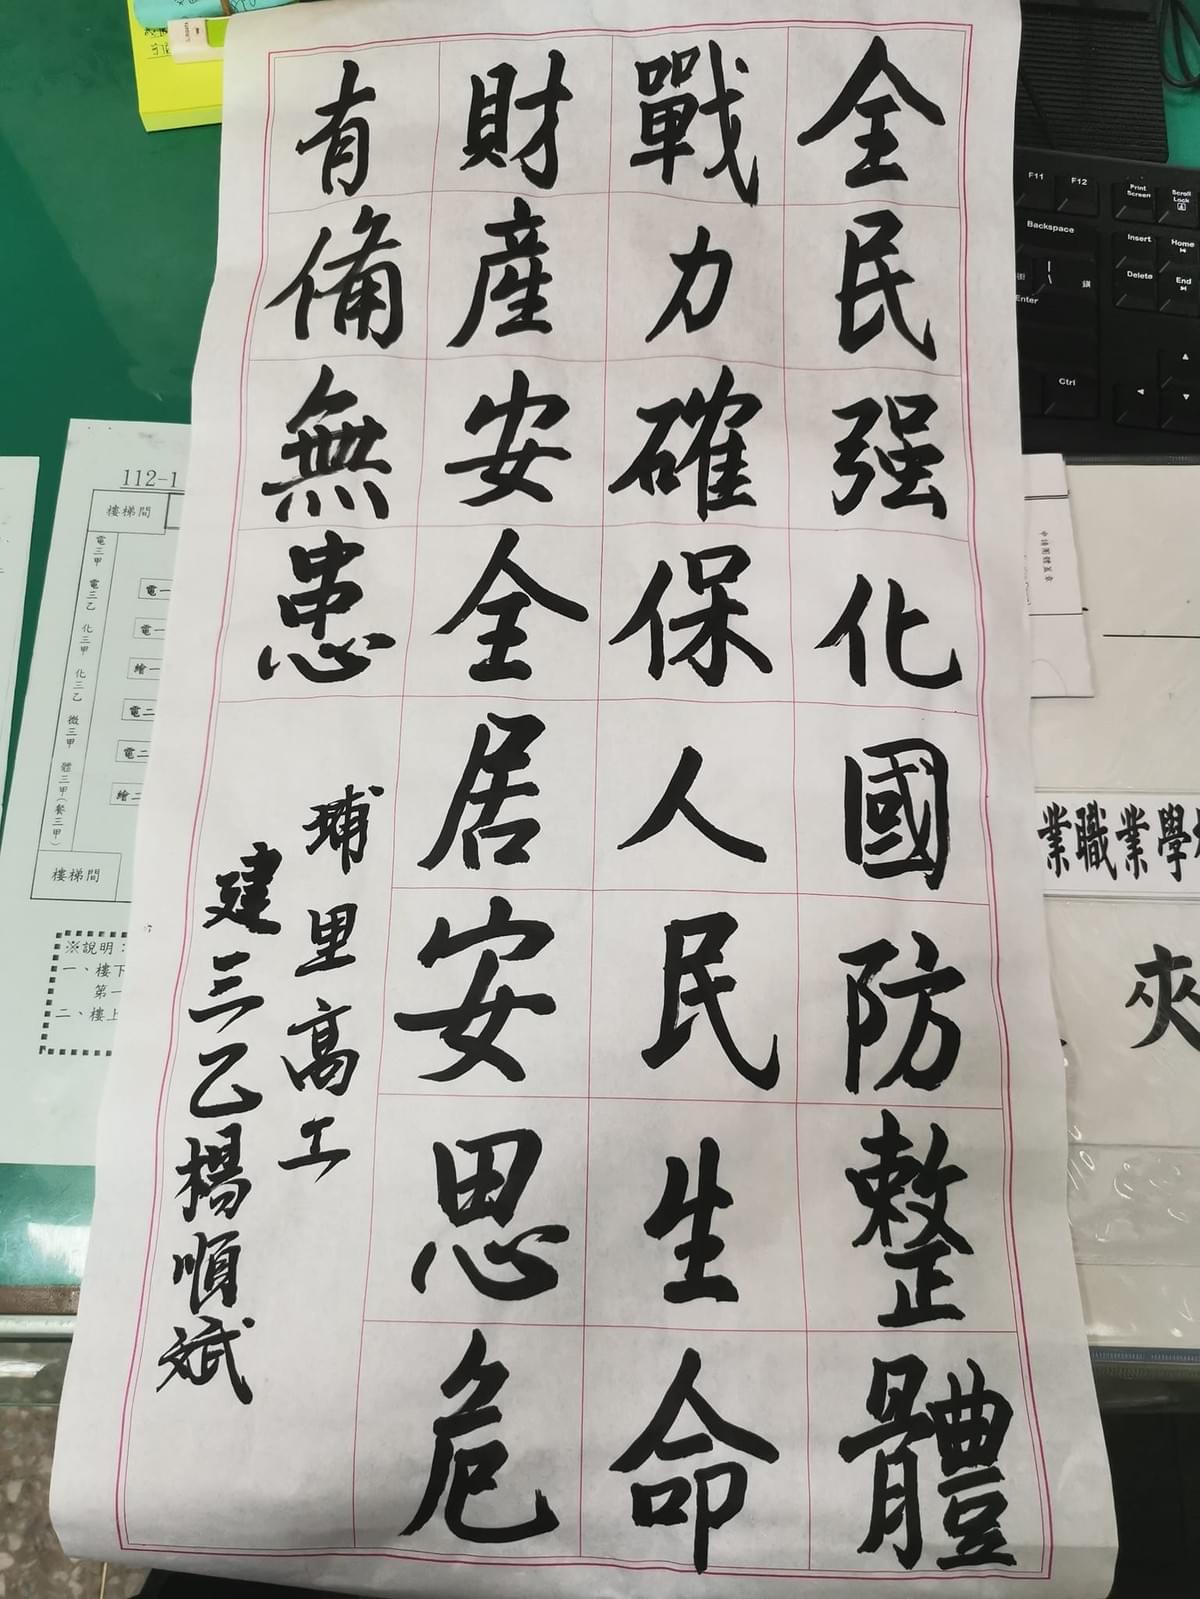 全民强化國防整體
戰力確保人民生命
財產安全居安思危
有備無患
埔里高工
建三乙楊順斌
112-1
樓梯間
電三甲
電三乙
化三甲
化三乙
微三甲
體三甲(餐三甲)
樓梯間
電一
電一
繪一
電二
電二
繪二
※說明:
一、樓下
第一
二、樓上
F11
F12
Print Screen
Scroll Lock
Backspace
Insert
Home
Delete
End
Enter
Ctrl
業職業學校
夾